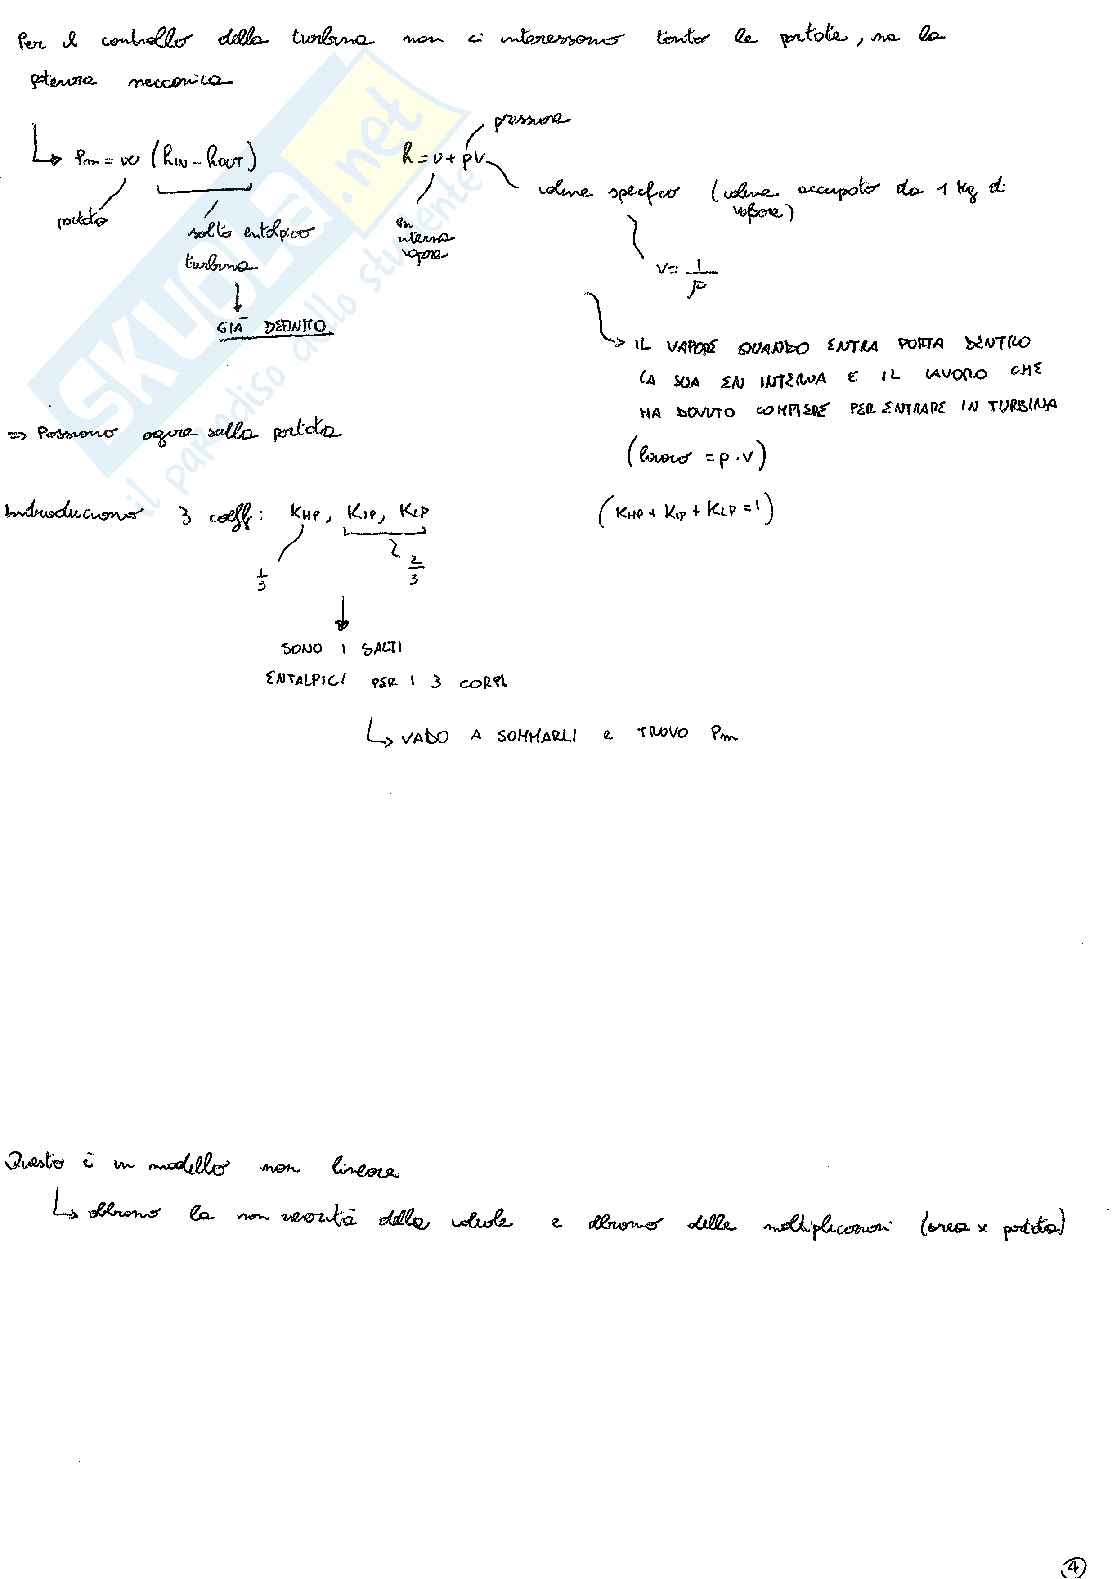 Per il controllo della turbina non ci interessano tanto le portate, ma la
potenza meccanica
Pm = w (hIN - hOUT)
portata
salto entalpico
turbina
GIÀ DEFINITO
h = u + pv
pressione
en
interna
vapore
volume specifico (volume occupato da 1 kg di
vapore)
v = 1/ρ
IL VAPORE QUANDO ENTRA PORTA DENTRO
LA SUA EN INTERNA E IL LAVORO CHE
HA DOVUTO COMPIERE PER ENTRARE IN TURBINA
(lavoro = p · v)
=> Possiamo agire sulla portata
Introduciamo 3 coeff: KHP, KIP, KLP
(KHP + KIP + KLP = 1)
1/3
2/3
SONO I SALTI
ENTALPICI PER I 3 CORPI
VADO A SOMMARLI e TROVO Pm
Questo è un modello non lineare
abbiamo la non linearità della valvola e abbiamo delle moltiplicazioni (area x portata)
4
SKUOLA.net
il paradiso dello studente